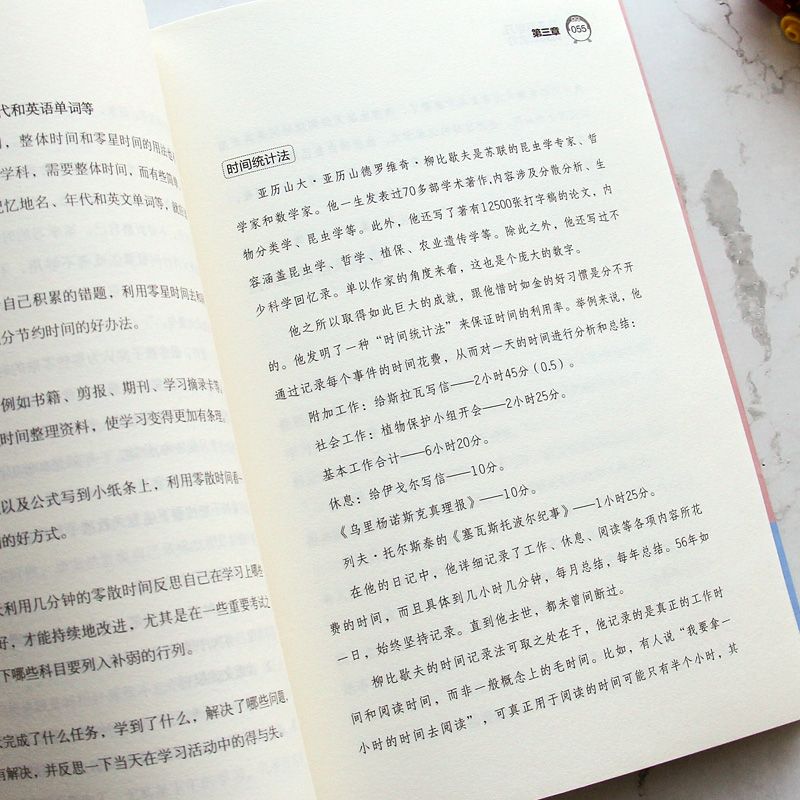 代和英语单词等
，整体时间和零星时间的用法
学科，需要整体时间，而有些
记忆地名、年代和英文单词等，
自己积累的错题，利用零星时间去
分节约时间的好办法。
例如书籍、剪报、期刊、学习摘录卡等，
时间整理资料，使学习变得更加有条理。
以及公式写到小纸条上，利用零散时间看一
的好方式。
利用几分钟的零散时间反思自己在学习上哪些
好，才能持续地改进，尤其是在一些重要考试之
下哪些科目要列入补弱的行列。
完成了什么任务，学到了什么，解决了哪些问题，
有解决，并反思一下当天在学习活动中的得与失。
第三章 055
时间统计法
亚历山大·亚历山德罗维奇·柳比歇夫是苏联的昆虫学专家、哲
学家和数学家。他一生发表过70多部学术著作，内容涉及分散分析、生
物分类学、昆虫学等。此外，他还写了著有12500张打字稿的论文，内
容涵盖昆虫学、哲学、植保、农业遗传学等。除此之外，他还写过不
少科学回忆录。单以作家的角度来看，这也是个庞大的数字。
他之所以取得如此巨大的成就，跟他惜时如金的好习惯是分不开
的。他发明了一种“时间统计法”来保证时间的利用率。举例来说，他
通过记录每个事件的时间花费，从而对一天的时间进行分析和总结：
附加工作：给斯拉瓦写信——2小时45分（0.5）。
社会工作：植物保护小组开会——2小时25分。
基本工作合计——6小时20分。
休息：给伊戈尔写信——10分。
《乌里杨诺斯克真理报》——10分。
列夫·托尔斯泰的《塞瓦斯托波尔纪事》——1小时25分。
在他的日记中，他详细记录了工作、休息、阅读等各项内容所花
费的时间，而且具体到几小时几分钟，每月总结，每年总结。56年如
一日，始终坚持记录。直到他去世，都未曾间断过。
柳比歇夫的时间记录法可取之处在于，他记录的是真正的工作时
间和阅读时间，而非一般概念上的毛时间。比如，有人说“我要拿一
小时的时间去阅读”，可真正用于阅读的时间可能只有半个小时，其